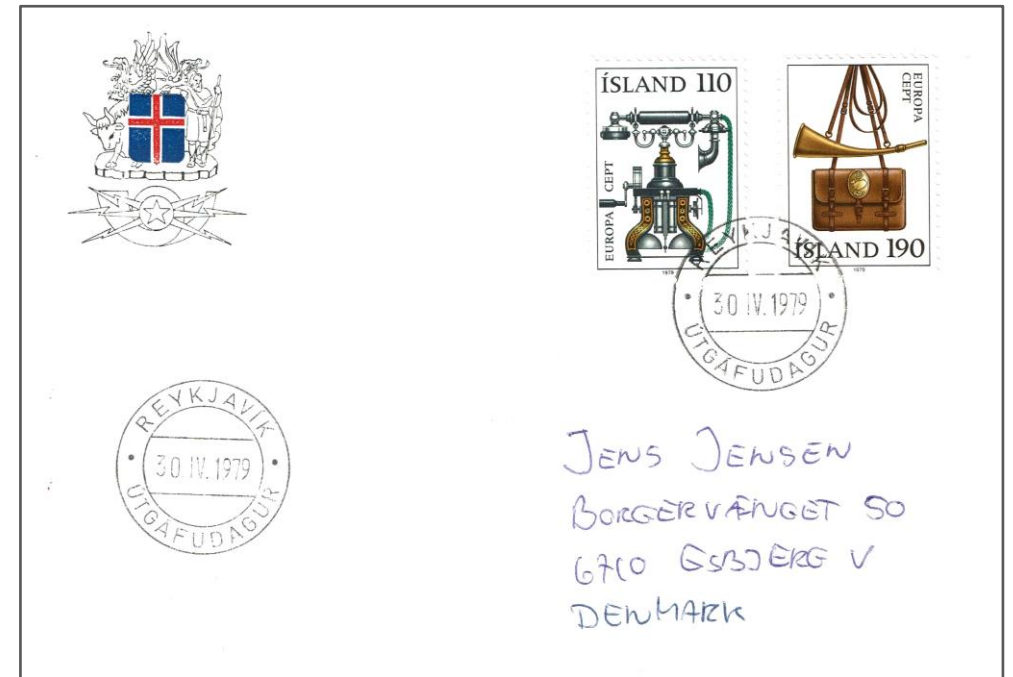 ÍSLAND 110
EUROPA CEPT
1979
EUROPA
CEPT
ÍSLAND 190
1979
REYKJAVÍK
30.IV.1979
ÚTGÁFUDAGUR
REYKJAVÍK
30.IV.1979
ÚTGÁFUDAGUR
JENS JENSEN
BORGERVÆNGET 50
6710 ESBJERG V
DENMARK